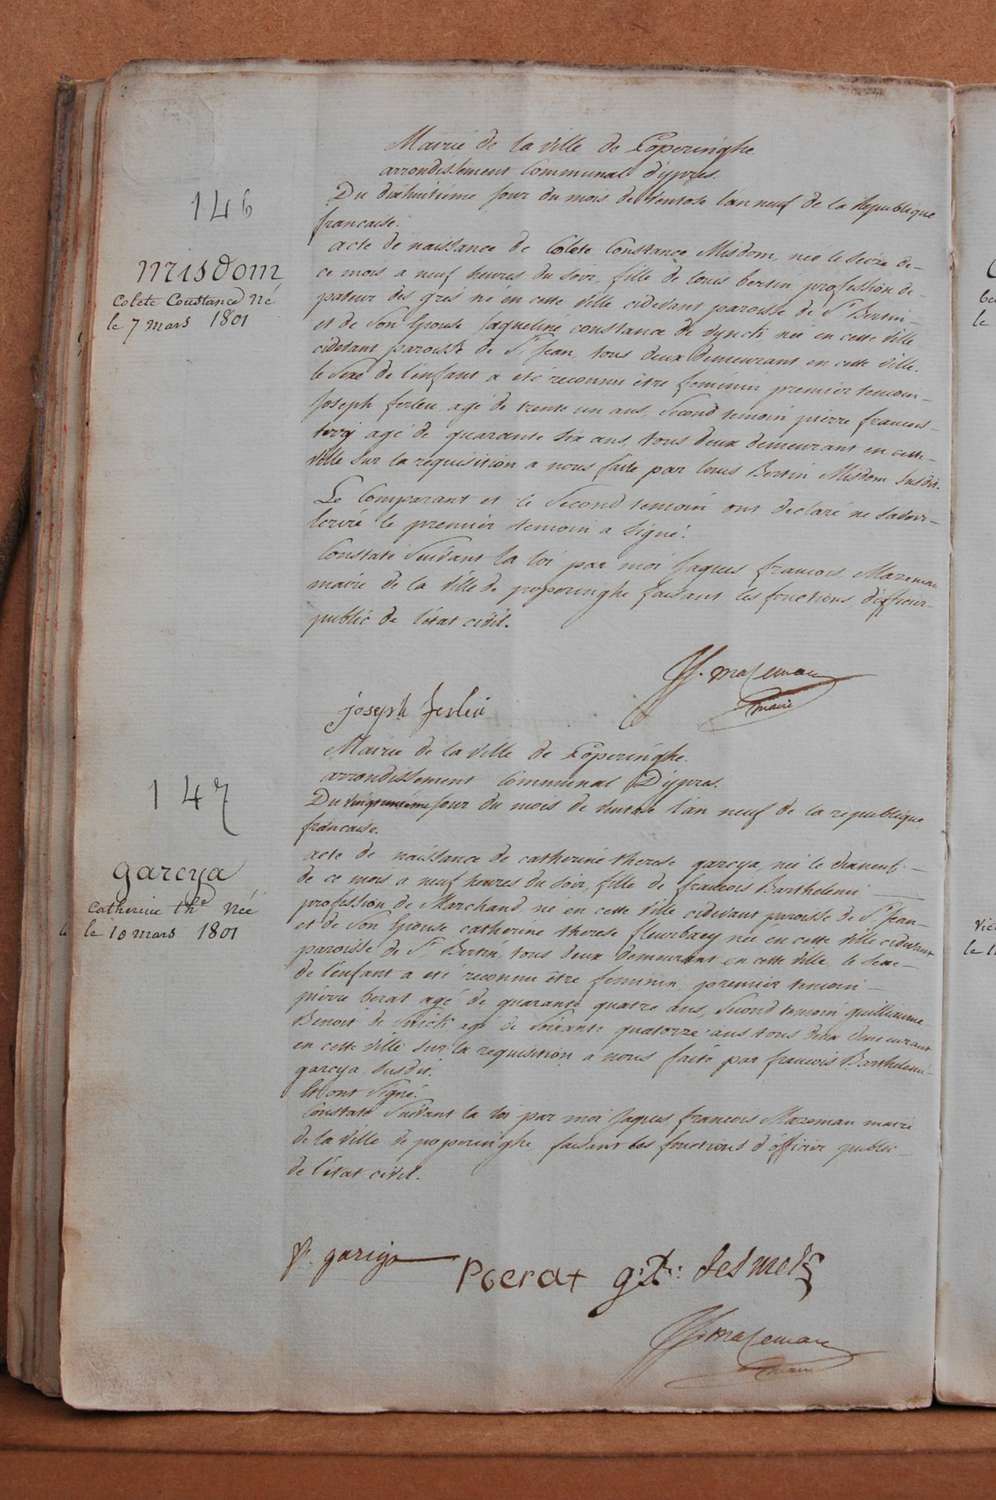 Mairie de la ville de Poperinghe
arrondissement Communal d'ypres.
146
Du dixhuitième jour du mois de ventose l'an neuf de la Republique
francaise.
acte de naissance de Colete Constance Misdom, née le seize de
misdom
Colete Constance Né
le 7 mars 1801
ce mois a neuf heures du soir, fille de louis bertin, profession de
pateur des grés né en cette ville cidevant paroisse de St. Bertin
et de son Epouse Jaqueline constance de née en cette ville
cidevant paroisse de St. Jean, tous deux demeurant en cette ville.
le sexe de l'enfant a été reconnu être feminin premier temoin
Joseph ferleu agé de trente un ans, Second temoin pierre francois
agé de quarante six ans, tous deux demeurant en cette
ville sur la requisition a nous faite par louis Bertin Misdom susdit.
Le Comparant et le Second temoin ont declaré ne savoir
Ecrire le premier temoin a signé.
Constaté suivant la loi par moi Jaques francois Mazeman
maire de la ville de poperinghe faisant les fonctions d'officier
public de l'état civil.
JJ. mazeman
maire
joseph ferleu
Mairie de la ville de Poperinghe.
arrondissement Communal D'ypres.
147
Du vingtunieme jour du mois de ventose l'an neuf de la republique
francaise.
acte de naissance de catherine therese garcya, née le dixneuf
garcya
Catherine thse Née
le 10 mars 1801
de ce mois a neuf heures du soir, fille de francois Barthelemi
profession de Marchand né en cette ville cidevant paroisse de St. Jean
et de son Epouse catherine therese fleurbaey née en cette ville cidevant
paroisse de St. Bertin, tous deux demeurant en cette ville. le sexe
de l'enfant a été reconnu être feminin premier temoin
pierre berat agé de quarante quatre ans, second temoin guilliaume
Benoit de agé de soixante quatorze ans tous deux demeurant
en cette ville sur la requisition a nous faite par francois Barthelemi
garcya susdit.
Et ont signé.
Constaté suivant la loi par moi Jaques francois Mazeman maire
de la ville de poperinghe faisant les fonctions d'officier public
de l'état civil.
f. garcya
P berat
JJ. mazeman
maire